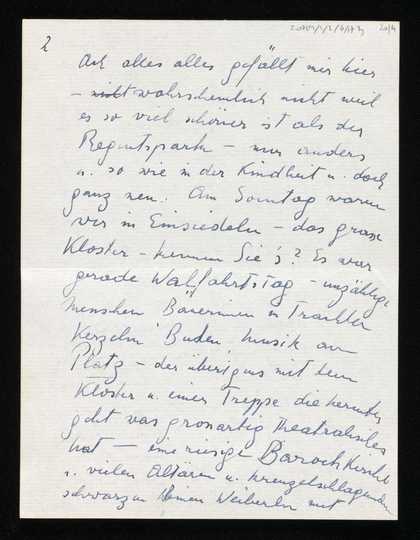 2
Ach alles alles gefällt mir hier
– nicht wahrscheinlich nicht weil
es so viel schöner ist als der
Regentspark – nur anders
u. so wie in der Kindheit u. doch
ganz neu. Am Sonntag waren
wir in Einsiedeln – das grosse
Kloster – kennen Sie's? Es war
gerade Wallfahrtstag – unzählige
Menschen Bäuerinnen in Trachten
Kerzeln Buden, Musik am
Platz – der übrigens mit dem
Kloster u. einer Treppe die herunter
geht was grossartig Theatralisches
hat – eine riesige Barockkirche
u. vielen Altären u. kreuzelschlagenden
schwarzen kleinen Weiberln mit